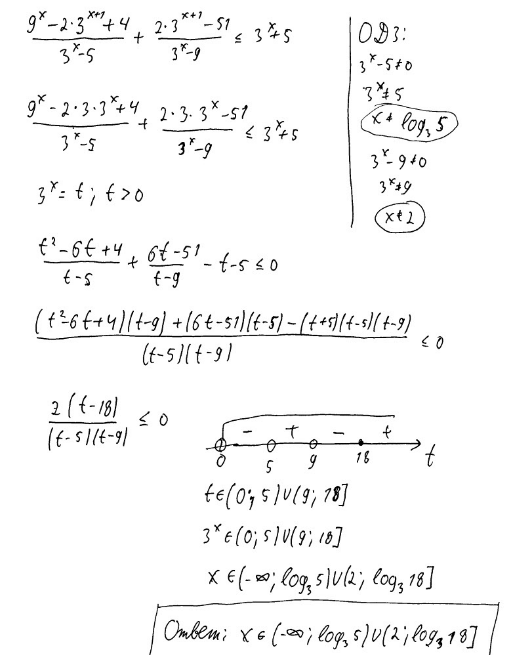 (9^x - 2·3^(x+1) + 4)/(3^x - 5) + (2·3^(x+1) - 51)/(3^x - 9) ≤ 3^x + 5
(9^x - 2·3·3^x + 4)/(3^x - 5) + (2·3·3^x - 51)/(3^x - 9) ≤ 3^x + 5
3^x = t; t > 0
(t² - 6t + 4)/(t - 5) + (6t - 51)/(t - 9) - t - 5 ≤ 0
ОДЗ:
3^x - 5 ≠ 0
3^x ≠ 5
x ≠ log₃ 5
3^x - 9 ≠ 0
3^x ≠ 9
x ≠ 2
((t² - 6t + 4)(t - 9) + (6t - 51)(t - 5) - (t + 5)(t - 5)(t - 9))/((t - 5)(t - 9)) ≤ 0
2(t - 18)/((t - 5)(t - 9)) ≤ 0
- + - +
0 5 9 18 t
t ∈ (0; 5) ∪ (9; 18]
3^x ∈ (0; 5) ∪ (9; 18]
x ∈ (-∞; log₃ 5) ∪ (2; log₃ 18]
Ответ: x ∈ (-∞; log₃ 5) ∪ (2; log₃ 18]